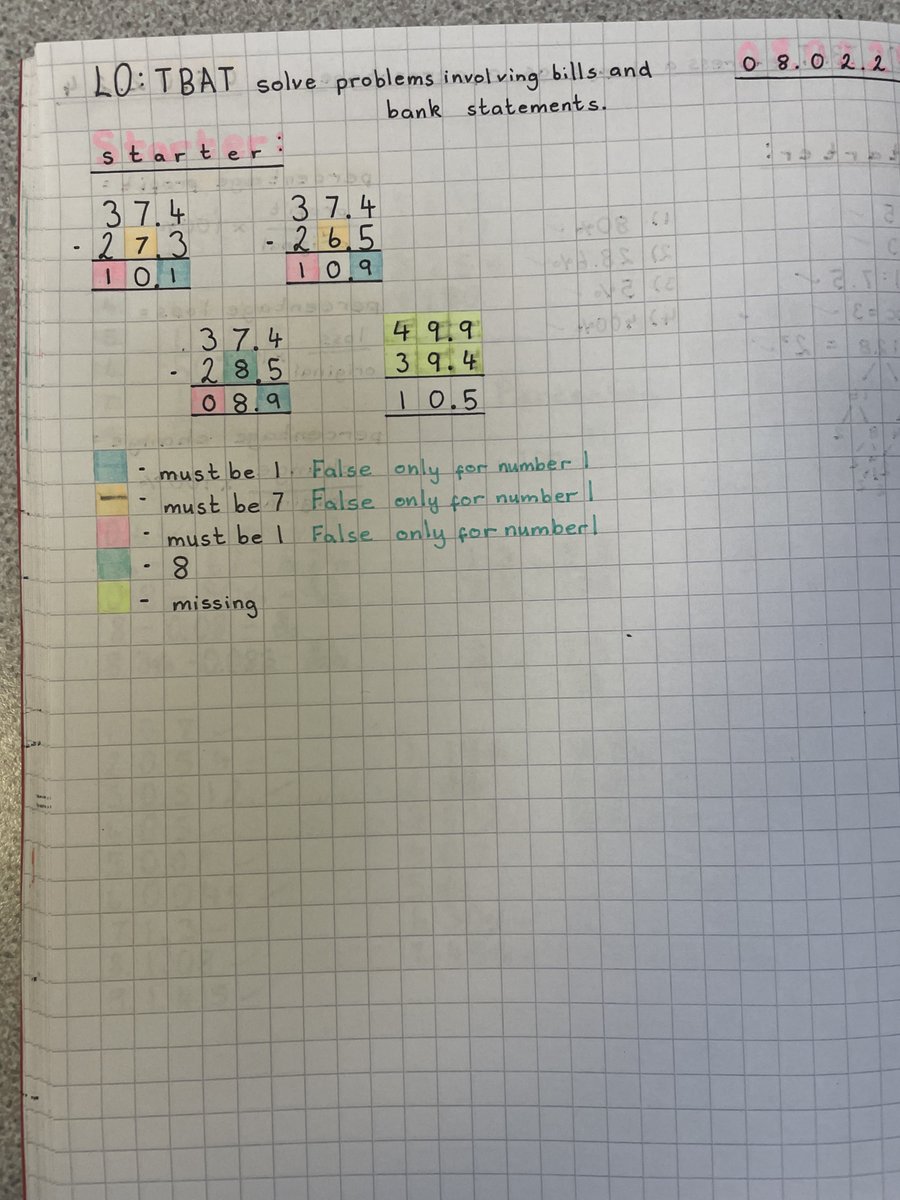 LO: TBAT solve problems involving bills and
bank statements.
08.02.2
starter:
37.4
- 27.3
10.1
37.4
- 26.5
10.9
37.4
- 28.5
08.9
49.9
39.4
10.5
- must be 1 False only for number 1
- must be 7 False only for number 1
- must be 1 False only for number 1
- 8
- missing